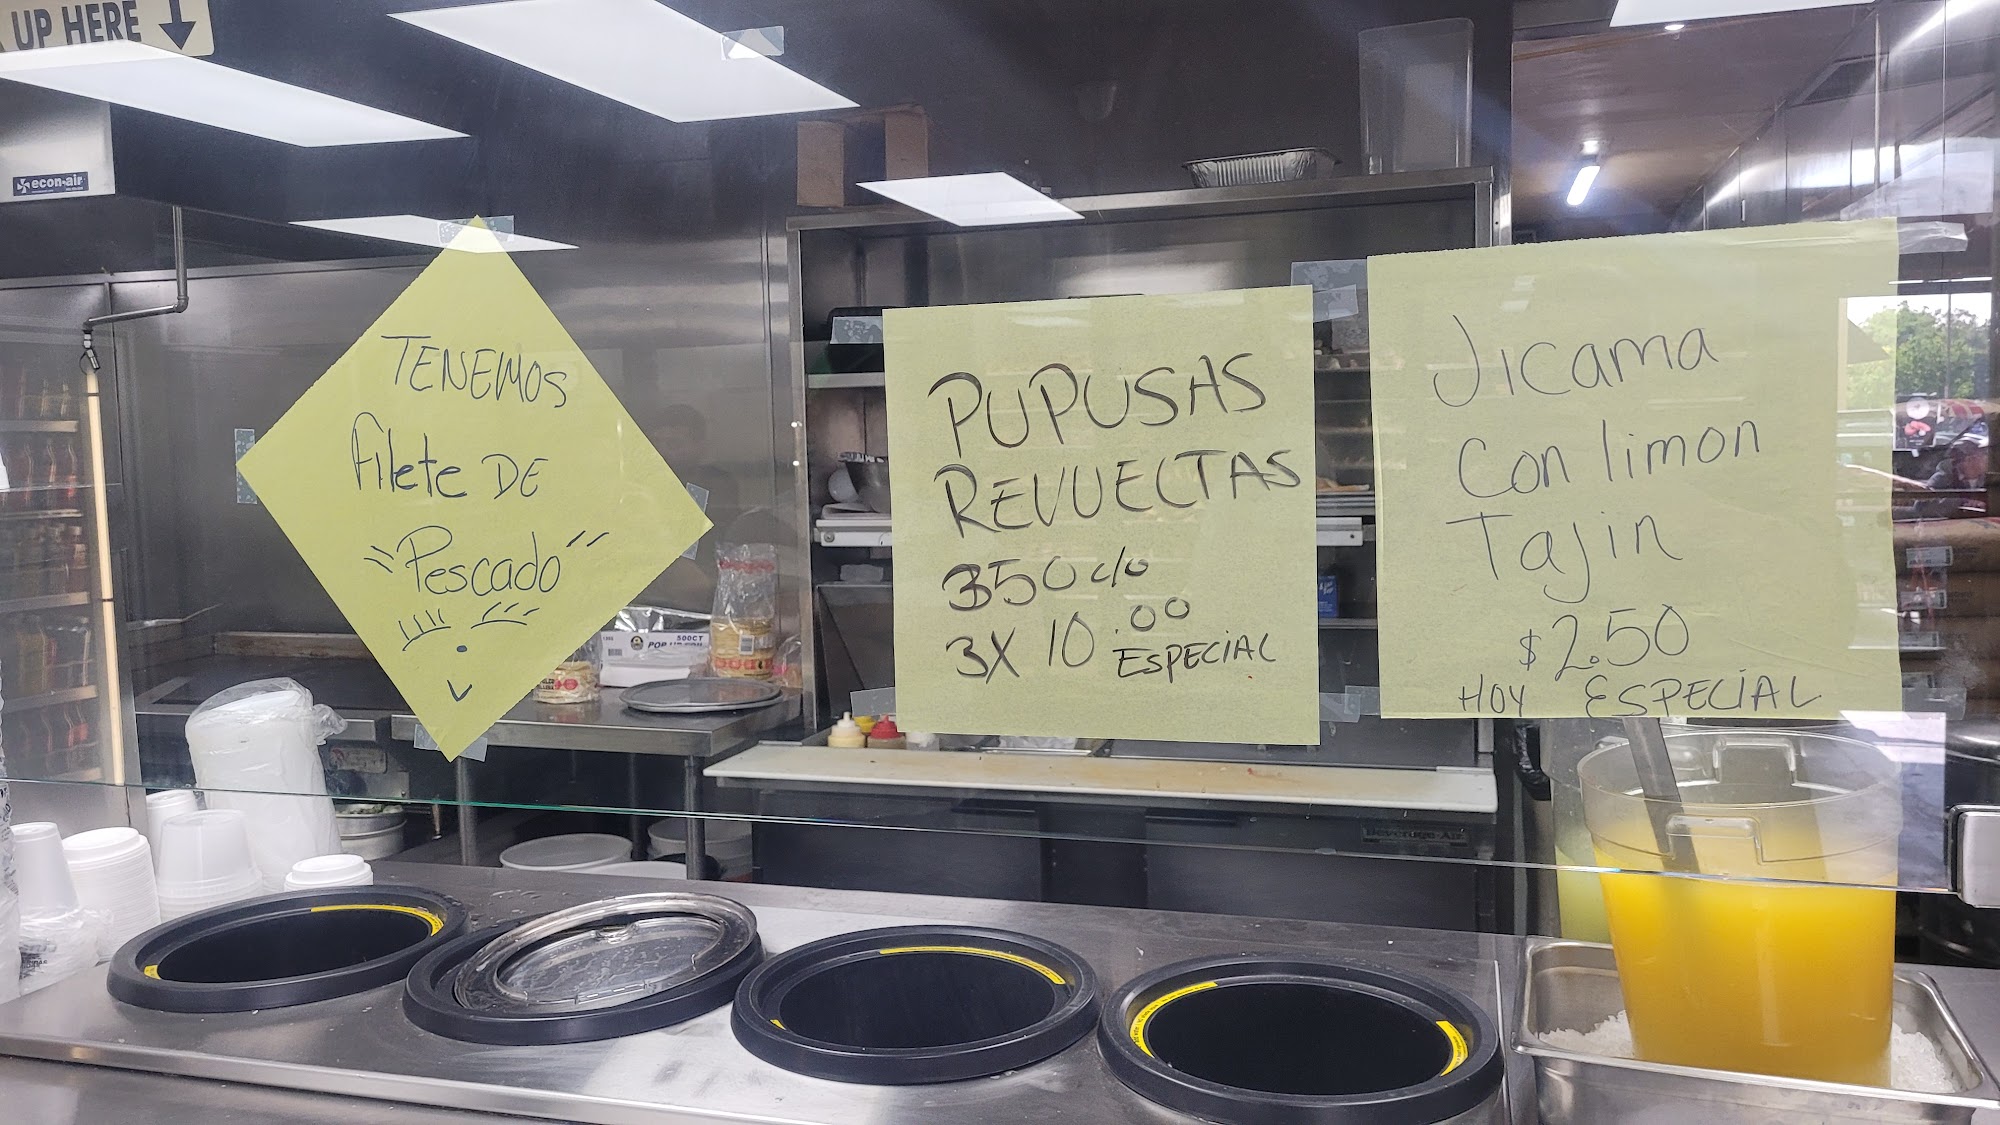 UP HERE
econ-air
TENEMOS
filete DE
"Pescado"
PUPUSAS
REVUELTAS
350 c/o
3X 10.00
ESPECIAL
Jicama
Con limon
Tajin
$2.50
HOY ESPECIAL
500CT
Beverage-Air